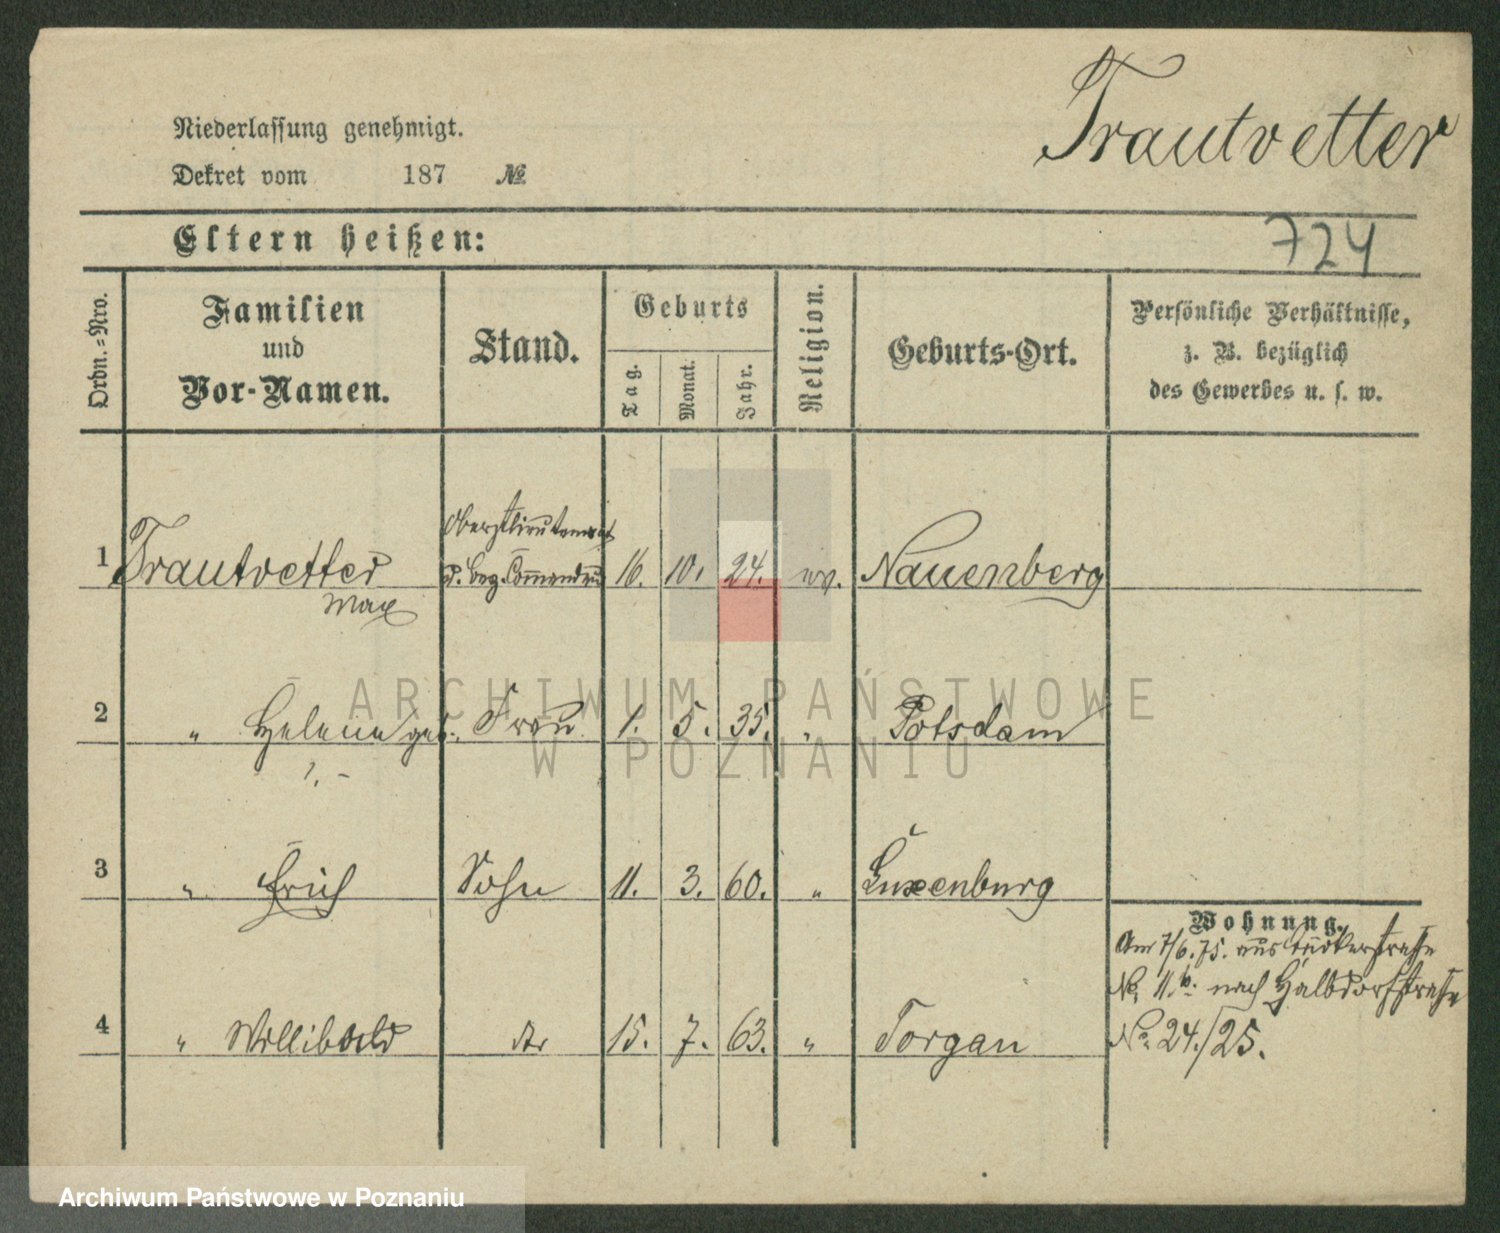 Trautvetter
Niederlassung genehmigt.
Dekret vom 187 №
Eltern heißen:
724
Ordn.=Nro.
Familien
und
Vor-Namen.
Stand.
Geburts
Tag.
Monat.
Jahr.
Religion.
Geburts-Ort.
Persönliche Verhältnisse,
z. B. bezüglich
des Gewerbes u. s. w.
Oberstlieutenant
1 Trautvetter u. Bez. Commandeur 16. 10. 24. ev. Nauenberg
Max
2 " Helene geb. Frau 1. 5. 35. " Potsdam
3 " Erich Sohn 11. 3. 60. " Luxenburg
Wohnung.
Am 7/6. 75. aus
No. 11.b. nach Halbdorfstraße
4 " Willibald dto 15. 7. 63. " Torgau
No. 24./25.
ARCHIWUM PAŃSTWOWE
W POZNANIU
Archiwum Państwowe w Poznaniu